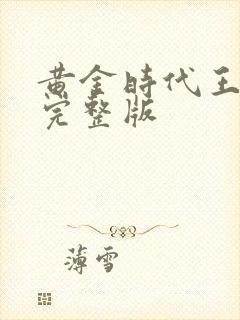 黄金時代王
完整版
薄雪